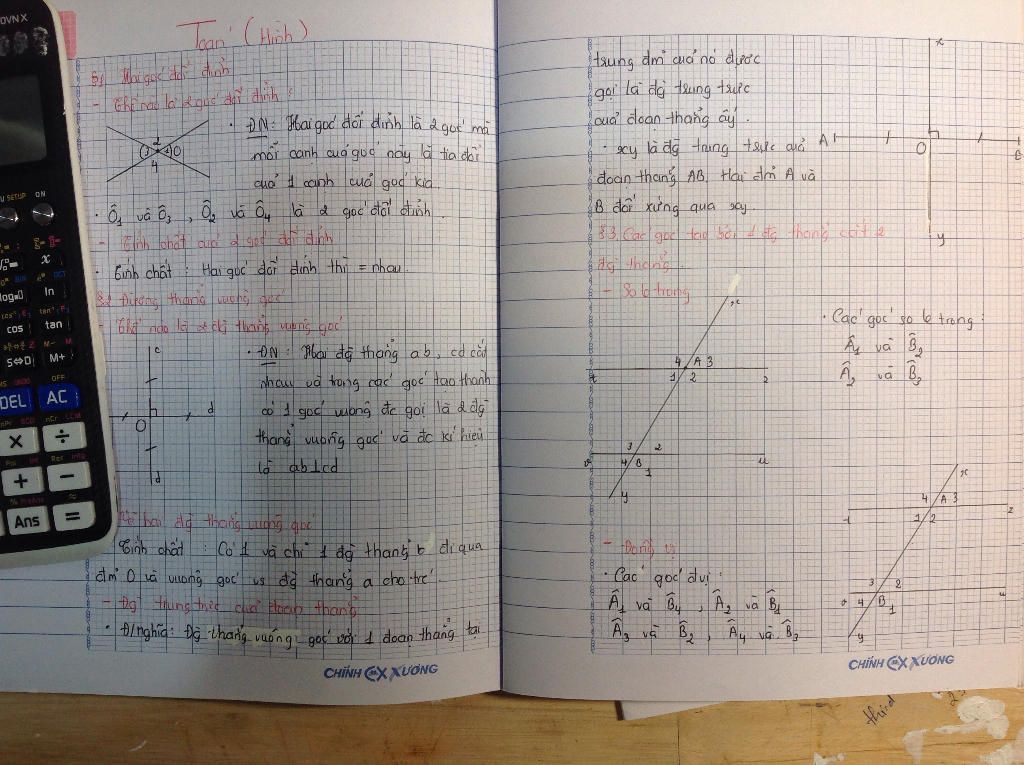 Toán (Hình)
§1 Hai góc đối đỉnh
- Thế nào là 2 góc đối đỉnh :
• ĐN: Hai góc đối đỉnh là 2 góc mà
mỗi cạnh của góc này là tia đối
của 1 cạnh của góc kia.
2
3 1 O
4
• Ô1 và Ô3 , Ô2 và Ô4 là 2 góc đối đỉnh.
- Tính chất của 2 góc đối đỉnh
• Tính chất : Hai góc đối đỉnh thì = nhau.
§2 Đường thẳng vuông góc
- Thế nào là 2 đg thẳng vuông góc
• ĐN : Hai đg thẳng ab, cd cắt
nhau và trong các góc tạo thành
có 1 góc vuông đc gọi là 2 đg
thẳng vuông góc và đc kí hiệu
là ab⊥cd
c
d
O
d
Vẽ hai đg thẳng vuông góc
Tính chất : Có 1 và chỉ 1 đg thẳng b đi qua
đm O và vuông góc vs đg thẳng a cho trc.
- Đg trung trực của đoạn thẳng
• Đ/nghĩa: Đg thẳng vuông góc với 1 đoạn thẳng tại
CHÍNH XƯƠNG
trung đm của nó được
gọi là đg trung trực
của đoạn thẳng ấy.
• xy là đg trung trực của
đoạn thẳng AB. Hai đm A và
B đối xứng qua xy.
x
A
O
B
y
§3. Các góc tạo bởi 1 đg thẳng cắt 2
đg thẳng.
- So le trong
x
4 A 3
t 1 2 z
3 2
v 4 B 1 u
y
• Các góc so le trong :
Â1 và B̂2
Â2 và B̂3
- Đồng vị
• Các góc đ.vị :
Â1 và B̂4 , Â2 và B̂1
Â3 và B̂2 , Â4 và B̂3
x
4 A 3
1 2 z
3 2
v 4 B 1 u
y
CHÍNH XƯƠNG
SETUP
ON
x
ln
cos
tan
S⇔D
M+
DEL
AC
×
÷
+
−
Ans
=